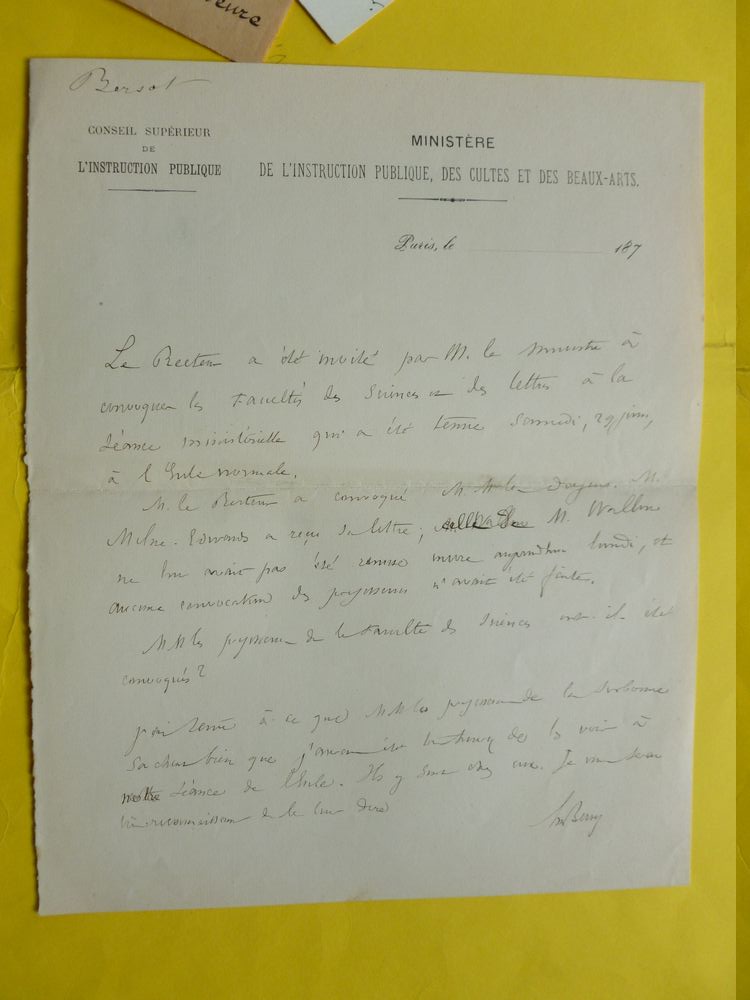 eure
Bersot
CONSEIL SUPÉRIEUR
DE
L'INSTRUCTION PUBLIQUE
MINISTÈRE
DE L'INSTRUCTION PUBLIQUE, DES CULTES ET DES BEAUX-ARTS.
Paris, le 187
Le Recteur a été invité par M. le ministre à
convoquer les Facultés des Sciences et des lettres à la
séance ministérielle qui a été tenue Samedi, 29 juin,
à l'École normale.
M. le Recteur a convoqué MM les doyens. M.
Milne-Edwards a reçu sa lettre; celle M. Wallon
ne lui avait pas été remise encore aujourd'hui lundi, et
aucune convocation des professeurs n'avait été faite.
MM les professeurs de la Faculté des Sciences ont-ils été
convoqués?
à ce que MM les professeurs de la Sorbonne
sachent bien que j'aurais été heureux de les voir à
notre séance de l'École. Ils y sont chez eux. Je vous serai
bien reconnaissant de le leur dire